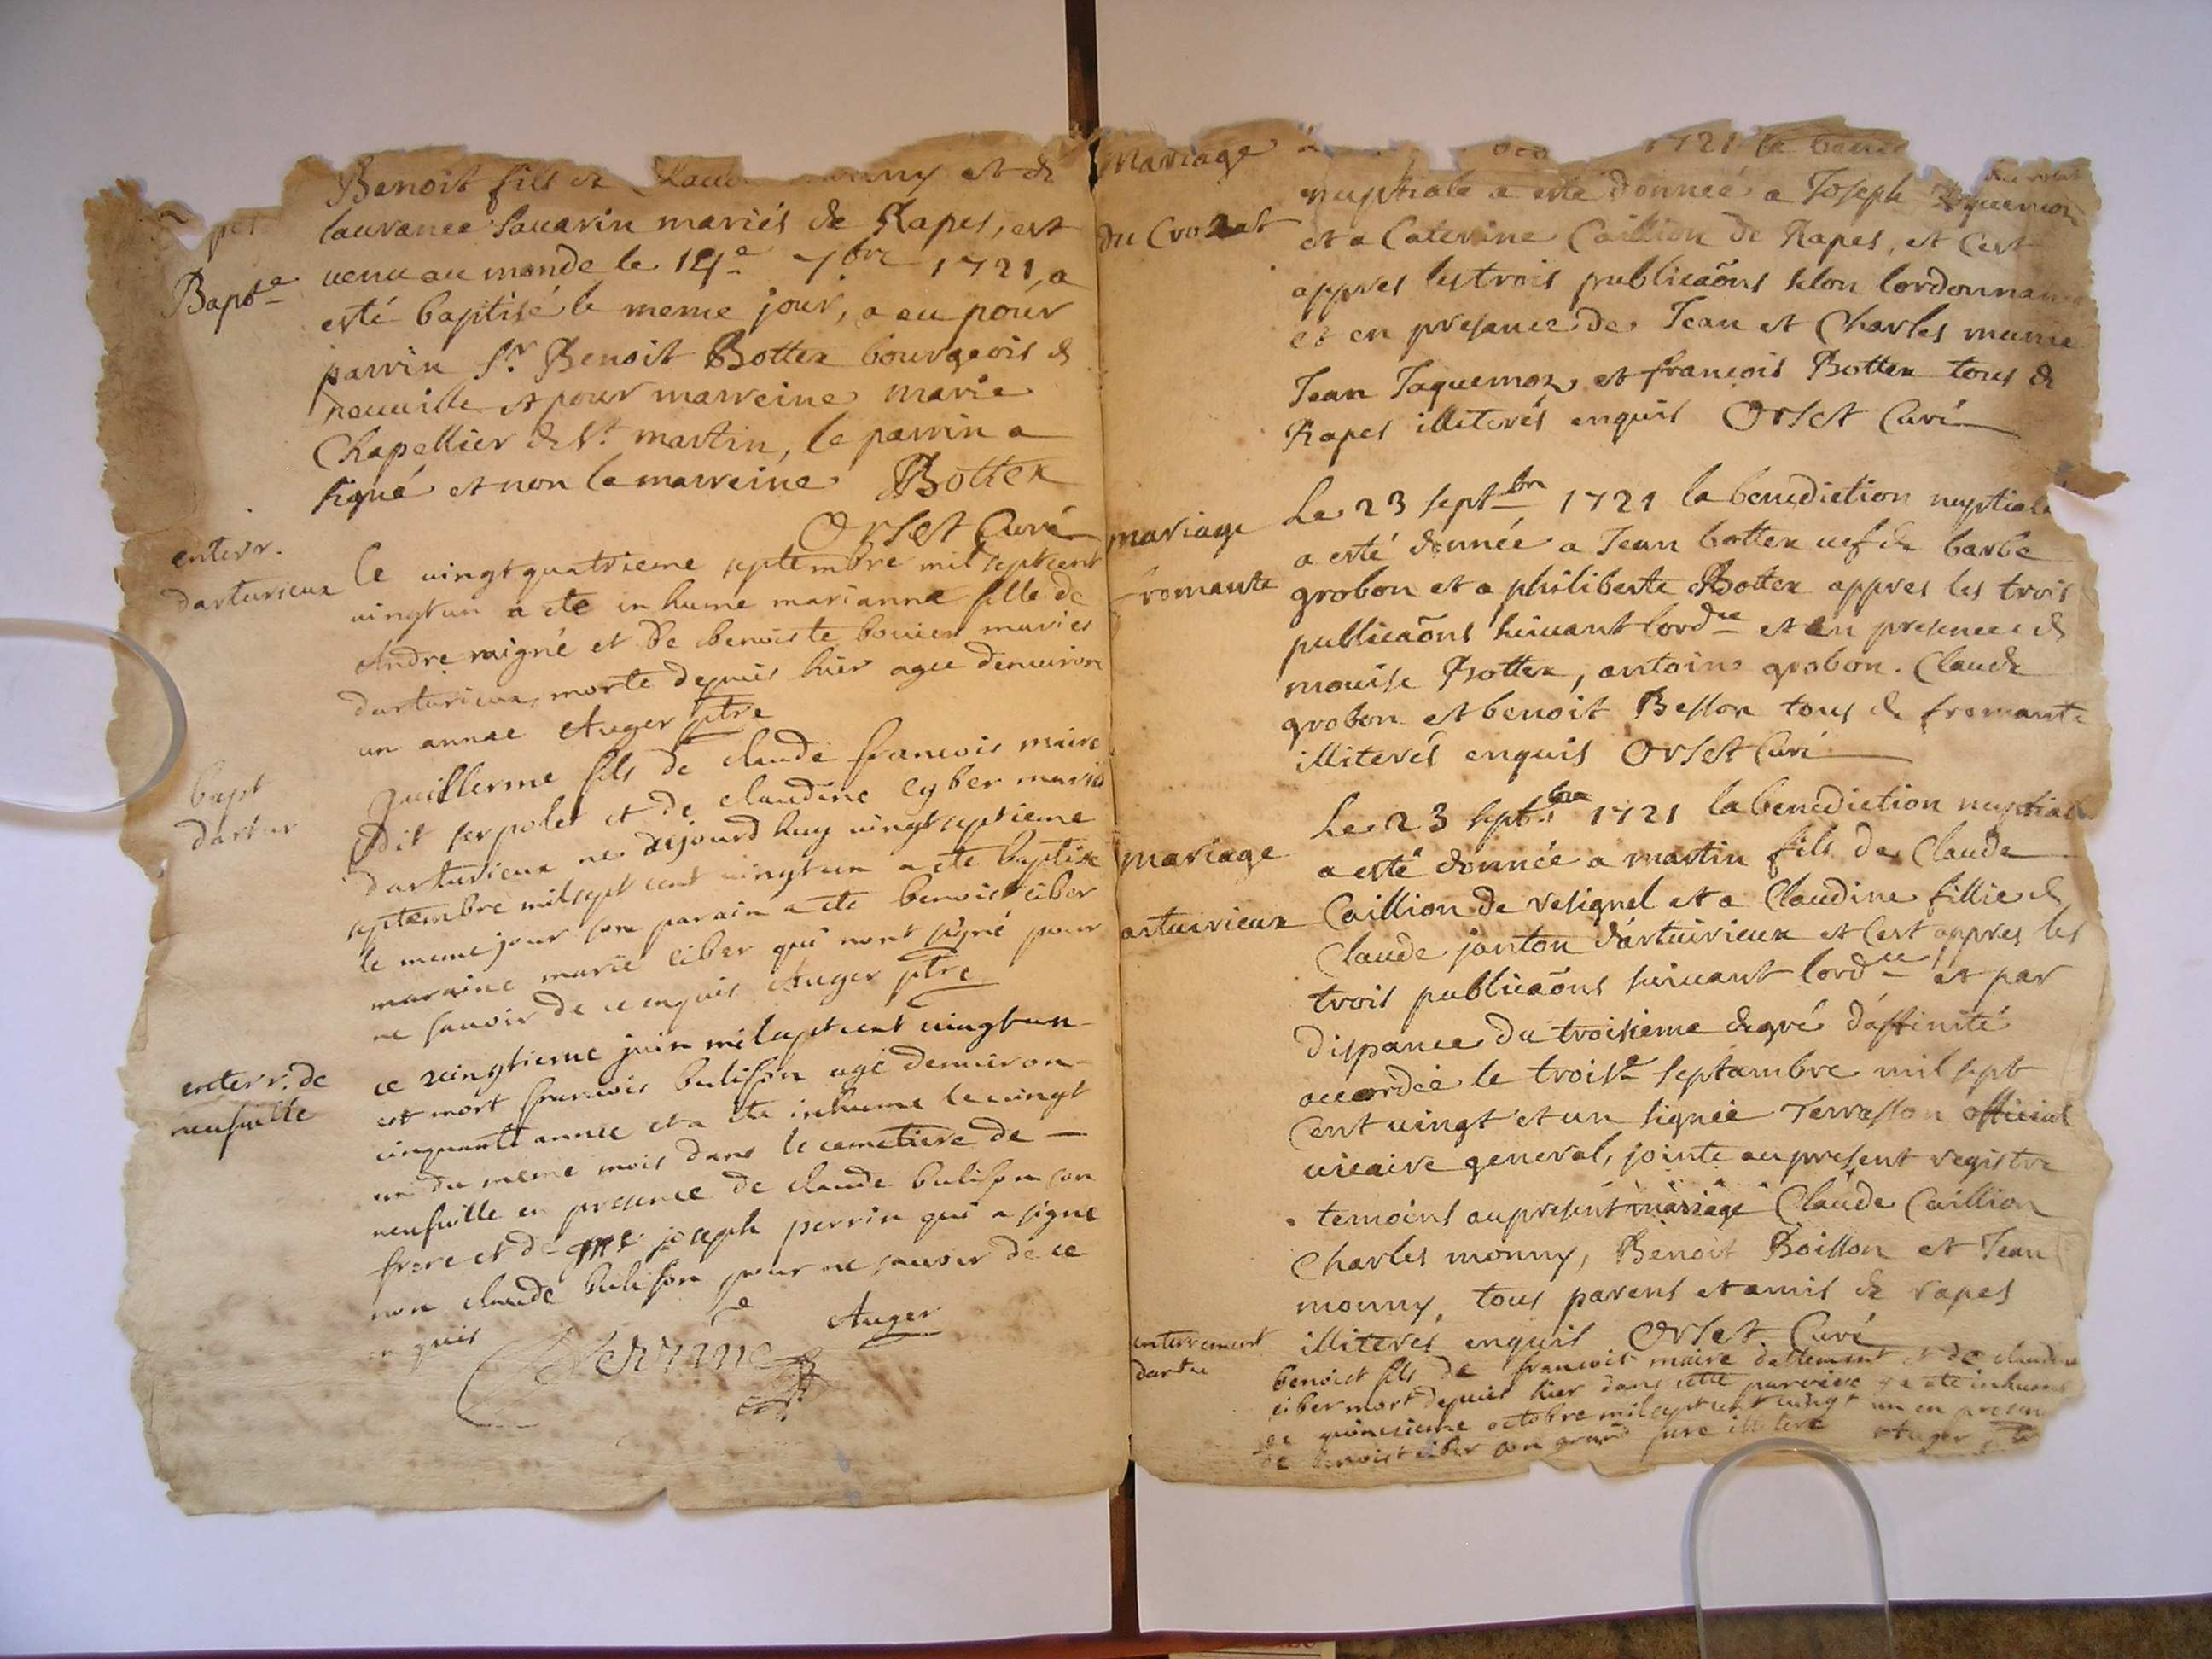 Benoit fils de et de
laurance Savarin mariés de Rapes, est
Bapt.e
venu au monde le 14.e 7.bre 1721, a
esté baptisé le meme jour, a eu pour
parrin S.r Benoit Bottex bourgeois de
neuville et pour marreine marie
Chapellier de St. martin, le parrin a
signé et non la marreine Bottex
Orset Curé
enterr.
darturieux
le vingt quatrieme septembre mil sept cent
vingt un a ete inhume marianne fille de
Andre migné et de benoiste bouier maries
darturieux, morte depuis hier agee denviron
un annee Auger ptre
bapt
dartur
Guillerme fils de claude francois maire
dit serpolet et de claudine cyber maries
darturieux ne dejourdhuy vingt septieme
septembre mil sept cent vingt un a ete baptise
le meme jour son parain a ete benoist ciber
maraine marie ciber qui nont signé pour
ne sauoir de ce enquis Auger ptre
enterr. de
neufville
ce vingtieme juin mil sept cent vingt un
est mort francois bulisson agé denuiron
cinquante annee et a ete inhume le vingt
un du meme mois dans le cemetiere de
neufuille en presence de claude bulisson son
frere et de joseph perrin qui a signe
non claude bulisson pour ne sauoir de ce
enquis
Auger
Perrin
Mariage
1721 la bene
nuptiale a esté donnée a Joseph Jaquemoz
du Crozat
et a Caterine Caillion de Rapes, et cest
appres les trois publicaõns selon lordonnan
et en presance de Jean et Charles
Jean Jaquemoz, et francois Bottex tous de
Rapes illiterés enquis Orset Curé
mariage
fromante
Le 23 sept.bre 1721 la benediction nuptiale
a esté donnée a Jean bottex uef de barbe
grobon et a philiberte Bottex appres les trois
publicaõns suiuant lord.ce et en presence de
mouise Bottex, antoine grobon. Claude
grobon et benoit Besson tous de fromante
illiterés enquis Orset Curé
mariage
artuirieux
Le 23 sept.bre 1721 la benediction nuptiale
a esté donnée a martin fils de Claude
Caillion de resignel et a Claudine fillie de
Claude janton d'artuirieux et cest appres les
trois publicaõns suiuant lord.ce et par
dispance du troisieme degré d'affinité
accordée le trois.e septambre mil sept
cent vingt et un signée Terrasson official
uicaire general, jointe au present registre
temoins au present mariage Claude Caillion
Charles monny, Benoit Boisson et Jean
monny, tous parens et amis de rapes
illiterés enquis Orset Curé
enterrement
dartu
benoist fils de francois maire et de claudine
ciber mort depuis hier dans cette paroisse y a ete inhume
le quinzieme octobre mil sept cent vingt un en presen
de benoist ciber son grand pere illitere Auger